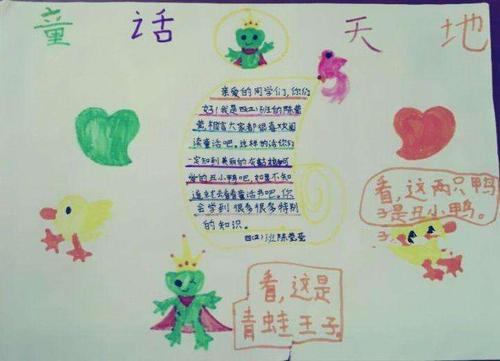 童话天地
亲爱的同学们,你们
好!我是四(2)班的陈莹
莹,相信大家都很喜欢阅
读童话吧。这样的话你们
一定知到美丽的灰姑娘,可
爱的丑小鸭吧,如果不知
道就去看看童话书吧。你
会学到很多很多特别
的知识。
四(2)班陈莹莹
看,这两只鸭
子是丑小鸭。
看,这是
青蛙王子